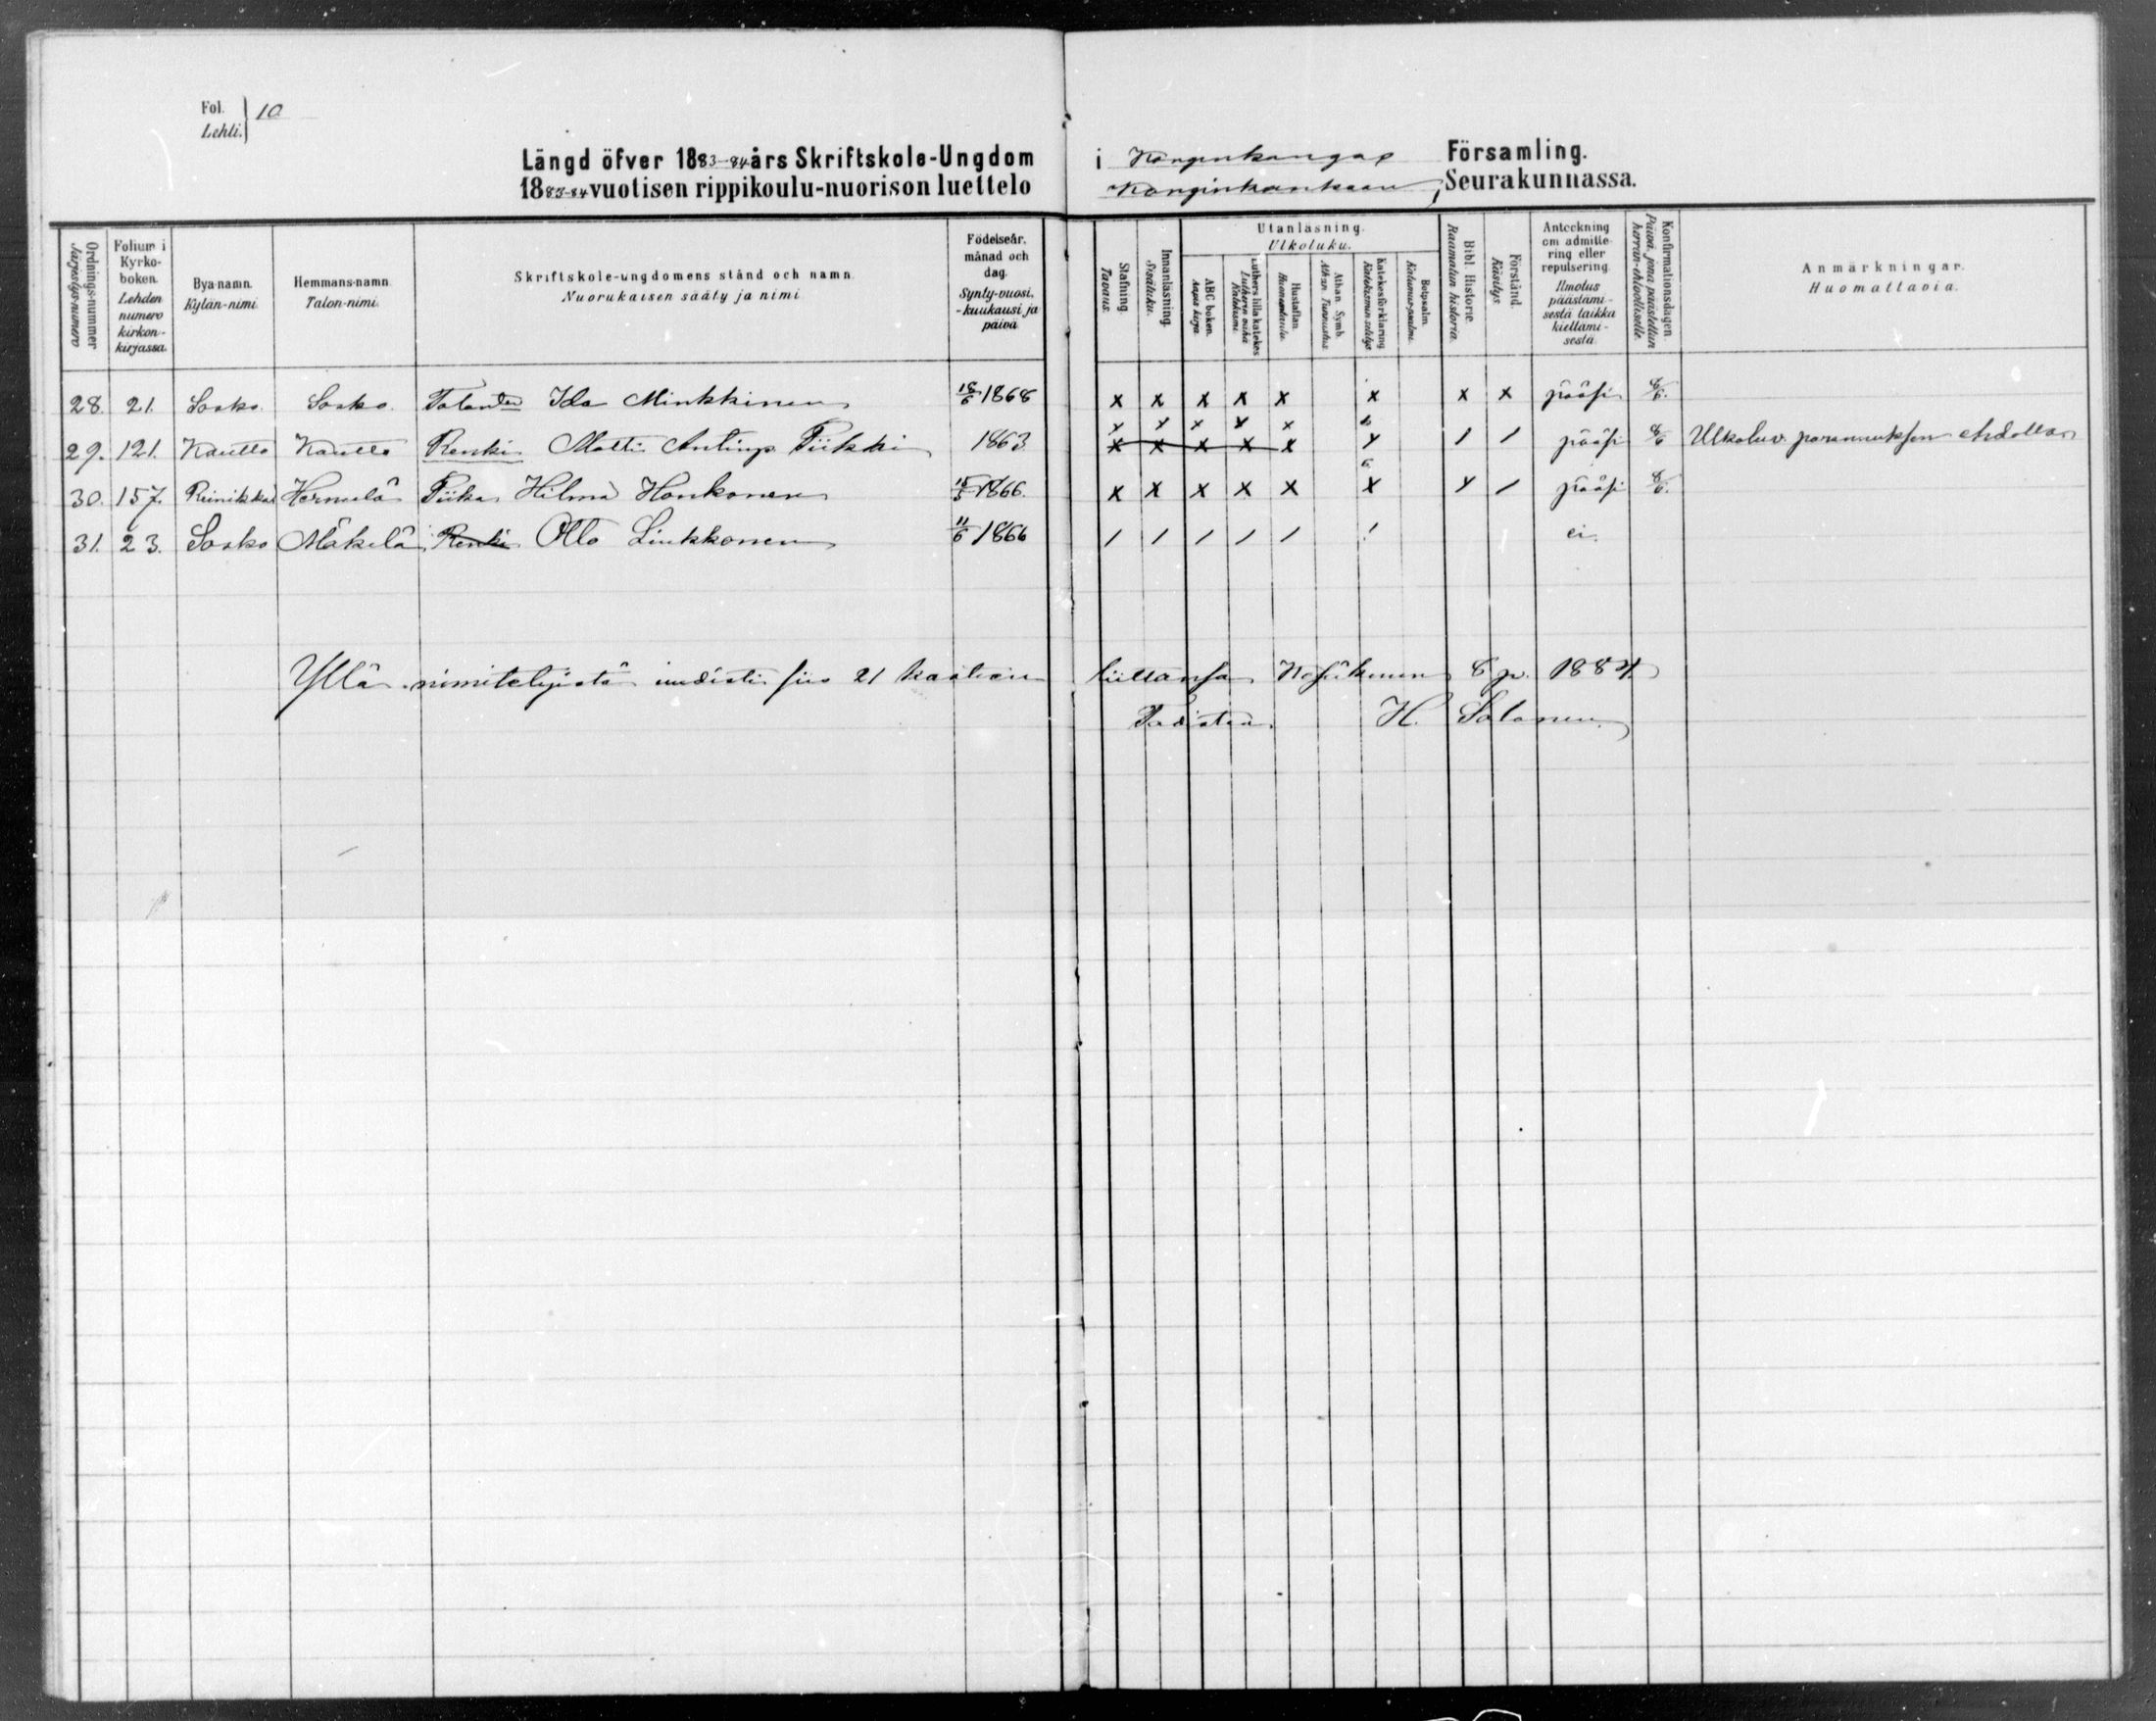 Fol. Lehti. 10
Längd öfver 1883-84 års Skriftskole-Ungdom i Konginkangas Församling.
1883-84 vuotisen rippikoulu-nuorison luettelo Konginkankaan Seurakunnassa.
Ordnings-nummer Järjestys-numero
Folium i Kyrko-boken. Lehden numero kirkon-kirjassa.
Bya-namn. Kylän-nimi.
Hemmans-namn. Talon-nimi.
Skriftskole-ungdomens stånd och namn.
Nuorukaisen sääty ja nimi
Födelseår, månad och dag. Synty-vuosi, -kuukausi ja päivä
Stafning. Tavaus.
Innanläsning. Sisäluku.
Utanläsning. Ulkoluku.
ABC boken. Aapis kirja.
Luthers lilla katekes Lutherin vähä Katekismi.
Hustaflan. Huoneentaulu.
Athan. Symb. Ath:sen Tunnustus
Katekesförklaring Katekismun selitys
Botpsalm. Katumus-psalmi.
Bibl. Historie. Raamatun historia.
Förstånd. Käsitys.
Anteckning om admitte-ring eller repulsering. Ilmotus päästämi-sestä taikka kieltämi-sestä.
Konfirmationsdagen Päivä, jona päästettiin herran-ehtoolliselle.
Anmärkningar. Huomattavia.
28. 21. Sosko. Sosko. Ida Minkkinen 18/6 1868 x x x x x x x x pääsi 8/6.
x x x x x
29. 121. Kautto Kautto Renki Matti Antinp. Piikki 1863 x x x x x x / / pääsi 8/6 Ulkoluv. parannuksen ehdolla
30. 157. Reinikka Hermelä Piika Hilma Honkonen 15/3 1866. x x x x x x x / pääsi 8/6.
31. 23. Sosko Mäkelä Renki Otto Liukkonen 11/6 1866 / / / / / / ei.
Yllä nimitetyistä uudisti siis 21 kasteen liittonsa Kesäkuun 8 p. 1884.
Todistaa H. Salonen.